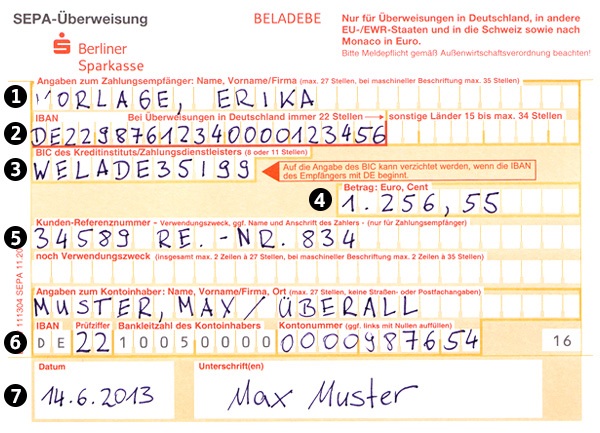 SEPA-Überweisung BELADEBE
Nur für Überweisungen in Deutschland, in andere
EU-/EWR-Staaten und in die Schweiz sowie nach
Monaco in Euro.
Bitte Meldepflicht gemäß Außenwirtschaftsverordnung beachten!
Berliner
Sparkasse
Angaben zum Zahlungsempfänger: Name, Vorname/Firma (max. 27 Stellen, bei maschineller Beschriftung max. 35 Stellen)
1 VORLAGE, ERIKA
IBAN Bei Überweisungen in Deutschland immer 22 Stellen sonstige Länder 15 bis max. 34 Stellen
2 DE22987612340000123456
BIC des Kreditinstituts/Zahlungsdienstleisters (8 oder 11 Stellen)
3 WELADE35199
Auf die Angabe des BIC kann verzichtet werden, wenn die IBAN
des Empfängers mit DE beginnt.
Betrag: Euro, Cent
4 1.256,55
Kunden-Referenznummer - Verwendungszweck, ggf. Name und Anschrift des Zahlers - (nur für Zahlungsempfänger)
5 34589 RE.-NR. 834
noch Verwendungszweck (insgesamt max. 2 Zeilen à 27 Stellen, bei maschineller Beschriftung max. 2 Zeilen à 35 Stellen)
Angaben zum Kontoinhaber: Name, Vorname/Firma, Ort (max. 27 Stellen, keine Straßen- oder Postfachangaben)
MUSTER, MAX / ÜBERALL
IBAN Prüfziffer Bankleitzahl des Kontoinhabers Kontonummer (ggf. links mit Nullen auffüllen)
6 DE 22 10050000 0000987654 16
Datum Unterschrift(en)
7 14.6.2013 Max Muster
111304 SEPA 11.20